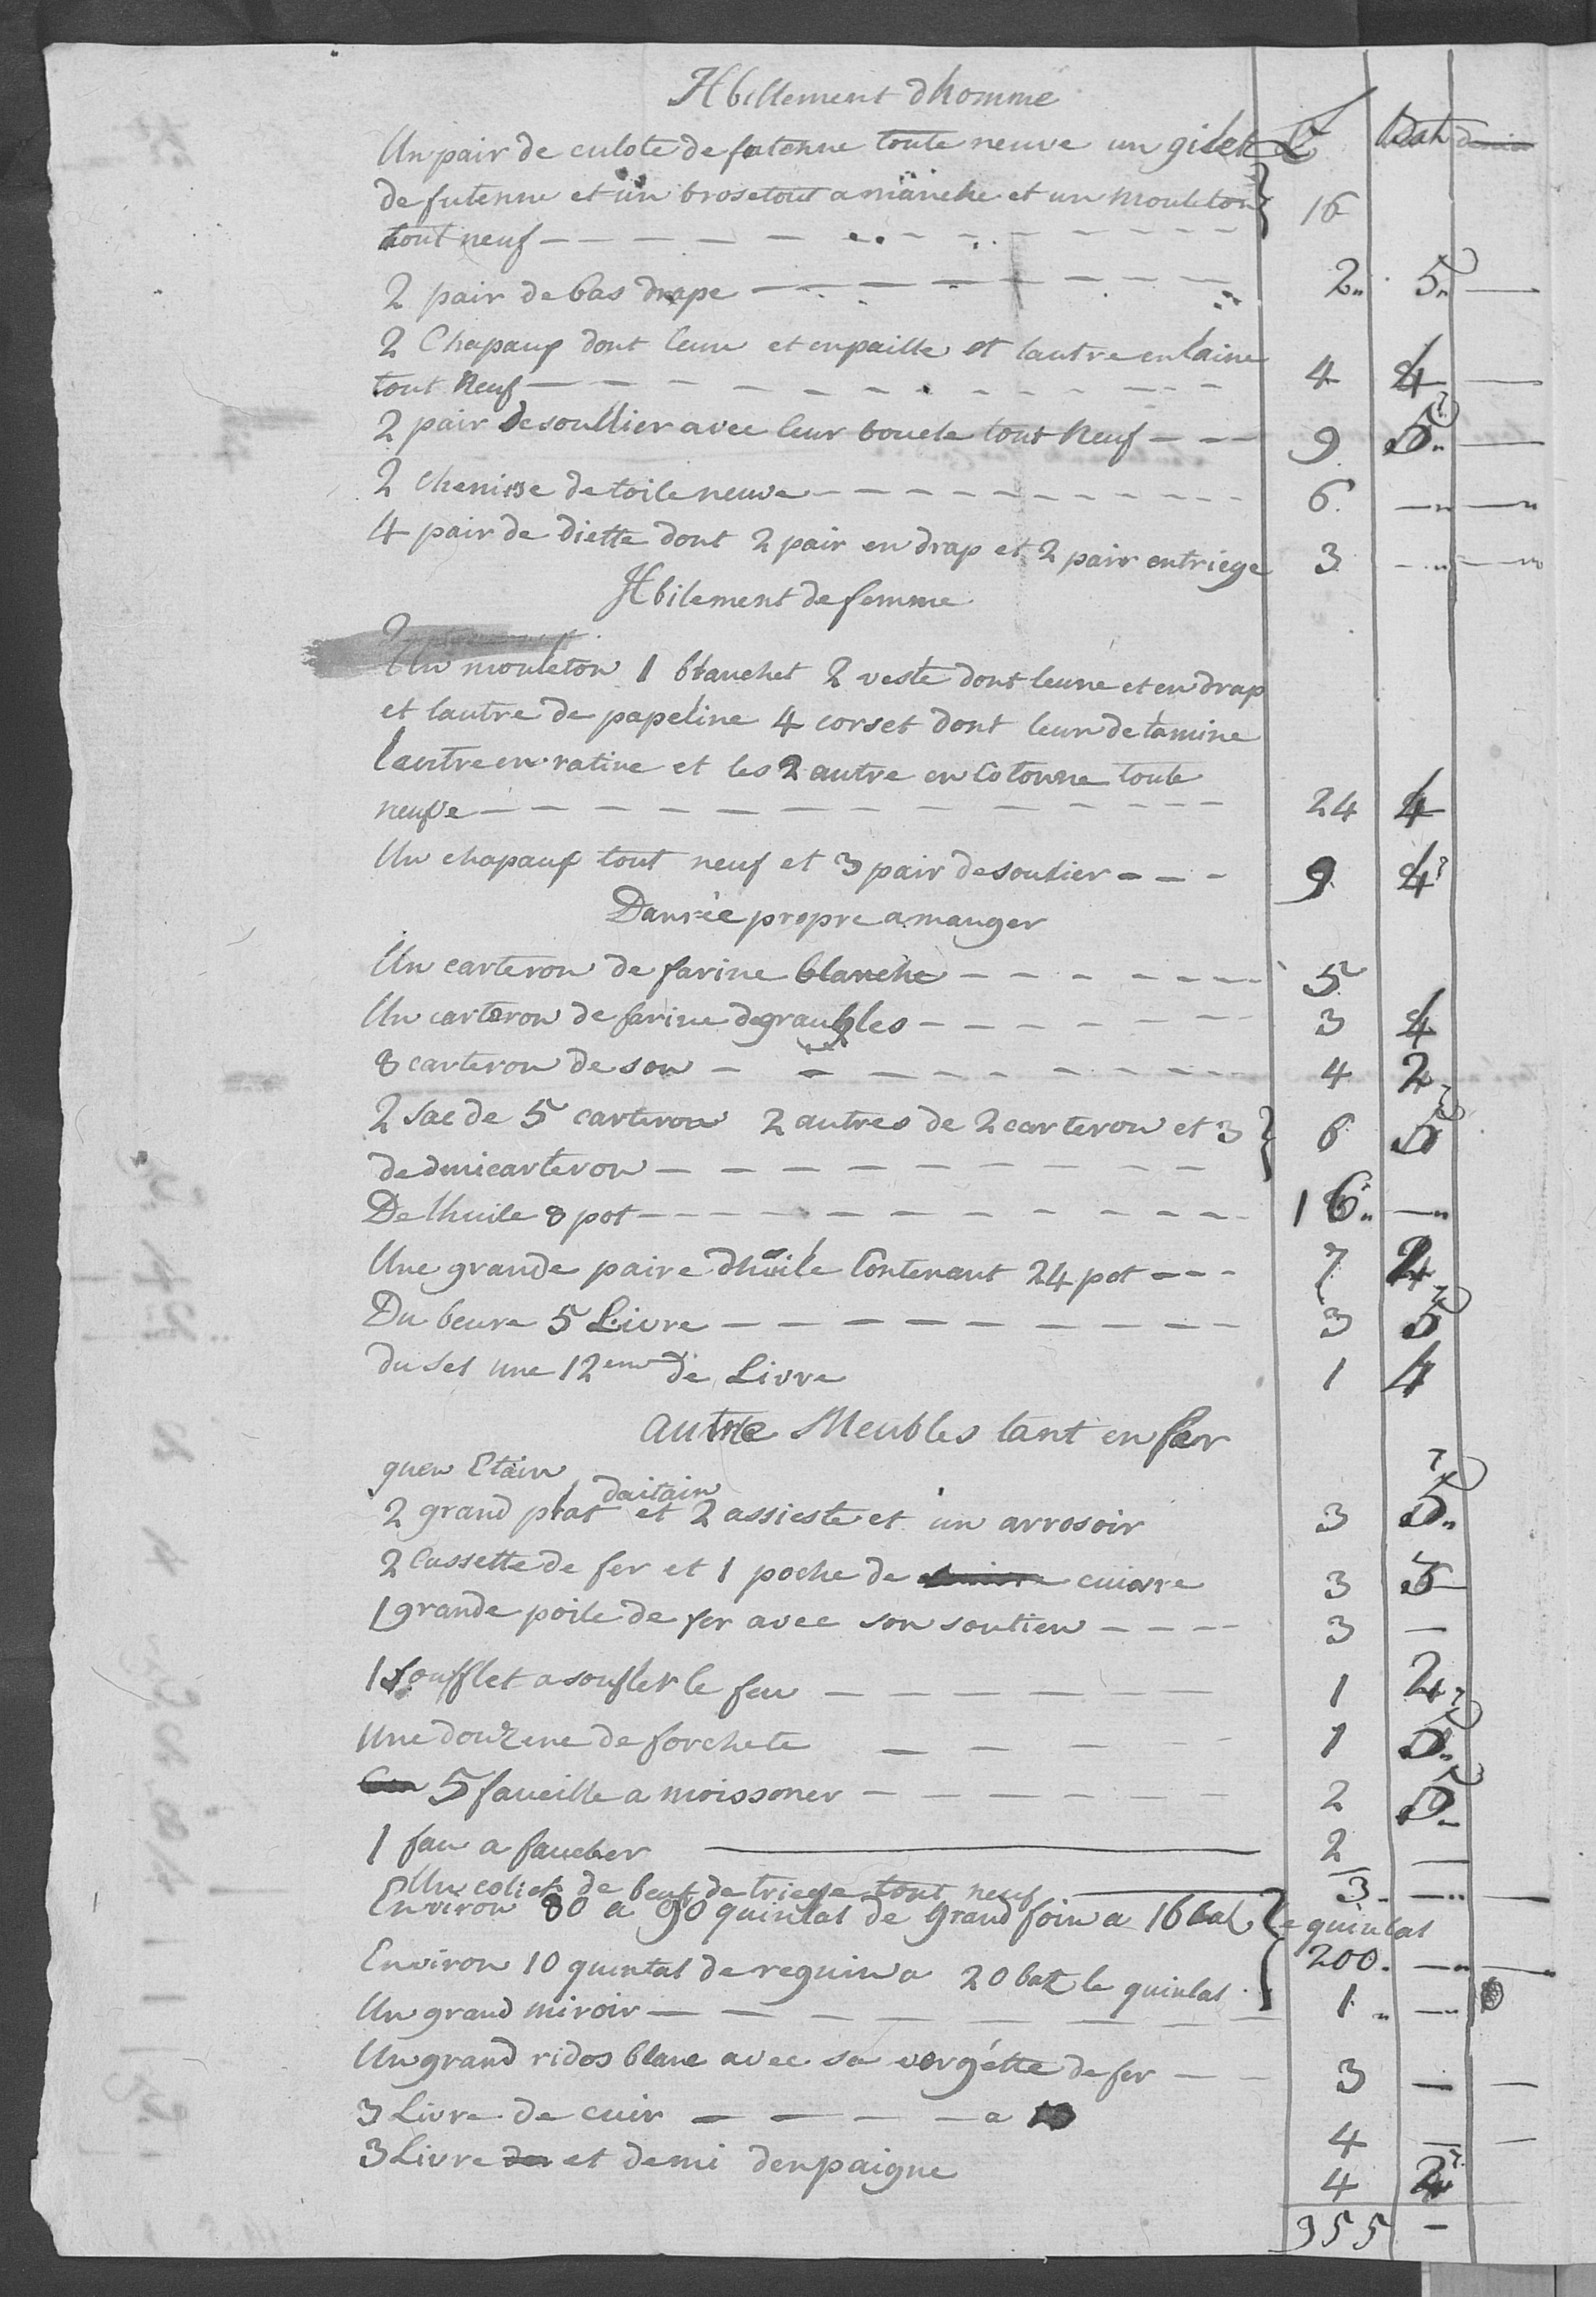 Hbillement dhomme
Un pair de culote de futenne toute neuve un gilet L Batz
de futenne et un brosetout a manche et un mouleton 16
tout neuf
2 pair de bas drape 2 5
2 Chapauf dont leun et enpaille et lautre enlaine
tout Neuf 4 4
2 pair de soullier avec leur boucle tout Neuf 9 5
2 chemise de toile neuve 6 —
4 pair de diette dont 2 pair en drap et 2 pair entriege 3 —
Hbilement de femme
Un mouleton 1 blanchet 2 veste dont leune et en drap
et lautre de papeline 4 corset dont leun detamine
lautre en ratine et les 2 autre en Cotonne toute
neufve 24 4
Un chapauf tout neuf et 3 pair de soulier 9 4
Danrée propre a manger
Un carteron de farine blanche 5
Un carteron de farine de 3 4
8 carteron de son 4 2
2 sac de 5 carteron 2 autres de 2 carteron et 3 6 5
de dmicarteron
De lhuile 8 pot 16 —
Une grande paire dhuile Contenant 24 pot 7
Du beure 5 Livre 3 5
du sel une 12eme de Livre 1 4
autre Meubles tant en fer
quen Etain
daitain
2 grand plat et 2 assieste et un arrosoir 3 5
2 Cassette de fer et 1 poche de cuivre 3 5
1 grande poile de fer avec son soutien 3 —
1 soufflet a soufler le feu 1 2
Une douzene de forchete 1 5
5 faucille a moissoner 2 5
1 fau a faucher 2 —
Un colier de beuf de triege tout neuf 3 — —
Environ 80 a 90 quintal de grand foin a 16 bat le quintal
Environ 10 quintal de reguin a 20 batz le quintal 200 — —
Un grand miroir 1 —
Un grand ridos blanc avec sa vergette de fer 3 — —
3 Livre de cuir a 4 — —
3 Livre et demi denpaigne 4
955 —